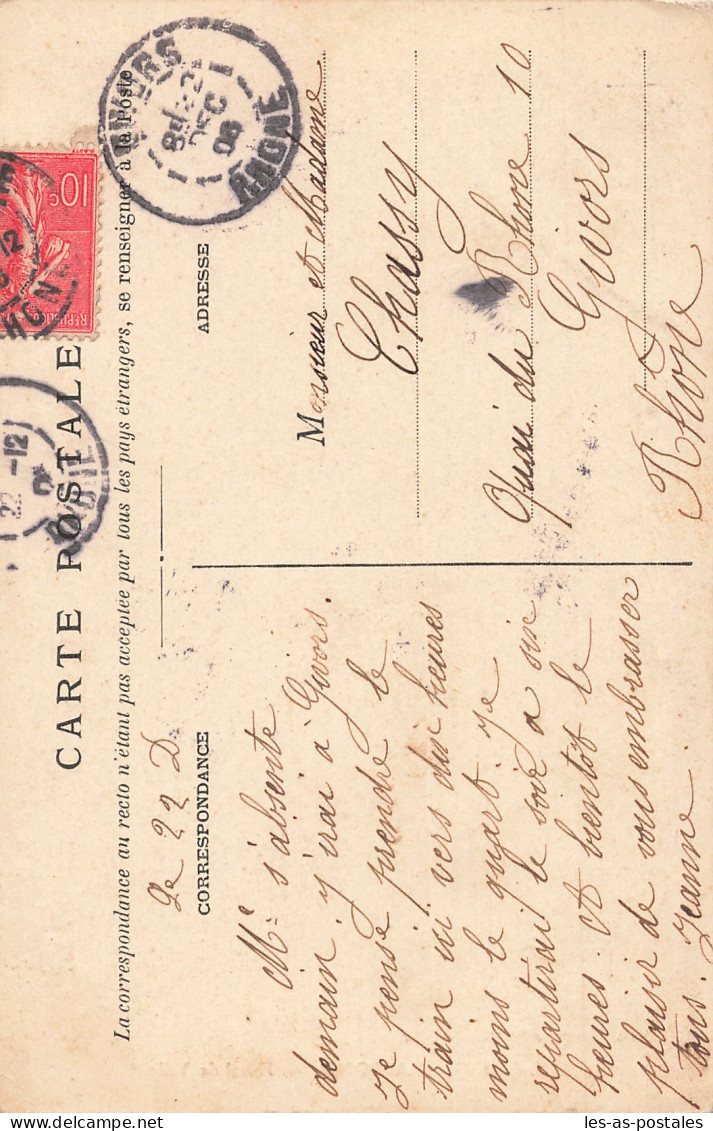 CARTE POSTALE
La correspondance au recto n'étant pas acceptée par tous les pays étrangers, se renseigner à la Poste
CORRESPONDANCE
Le 22 D
Me s'absente
demain. j'irai à Givors.
Je pense prendre le
train ici vers dix heures
moins le quart. Je
repartirai le soir à six
heures. A bientôt le
plaisir de vous embrasser
tous. Jeanne
ADRESSE
Monsieur et Madame
Chassy
Quai du Rhone 10
Givors
Rhône
10c
GIVORS
DEC
06
RHONE
22 -12
les-as-postales